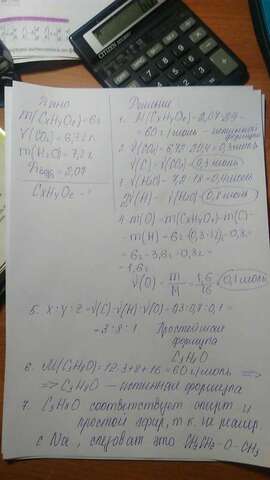 Дано
m(CxHyOz)=6г
V(CO₂)=6,72л.
m(H₂O)=7,2г
CxHyOz - ?
Решение
1. M(CxHyOz)=2,07·29=
=60г/моль - истинной формулы
2. ν(CO₂)=6,72:22,4=0,3моль
ν(C)=ν(CO₂)=0,3моль
3. ν(H₂O)=7,2:18=0,4моль
2ν(H)=ν(H₂O)=0,8моль
4. m(O)=m(CxHyOz)-m(C)-
-m(H)=6г-(0,3·12)-0,8=
=6г-3,6г-0,8г=
=1,6г
ν(O)=m/M=1,6/16=0,1моль
5. X:Y:Z=ν(C):ν(H):ν(O)=0,3:0,8:0,1=
=3:8:1 Простейшая
формула
C₃H₈O
6. M(C₃H₈O)=12·3+8+16=60г/моль =>
=> C₃H₈O - истинная формула
7. C₃H₈O соответствует спирт и
простой эфир, т.к. не реагир.
с Na, следоват. это CH₃CH₂-O-CH₃
CITIZEN